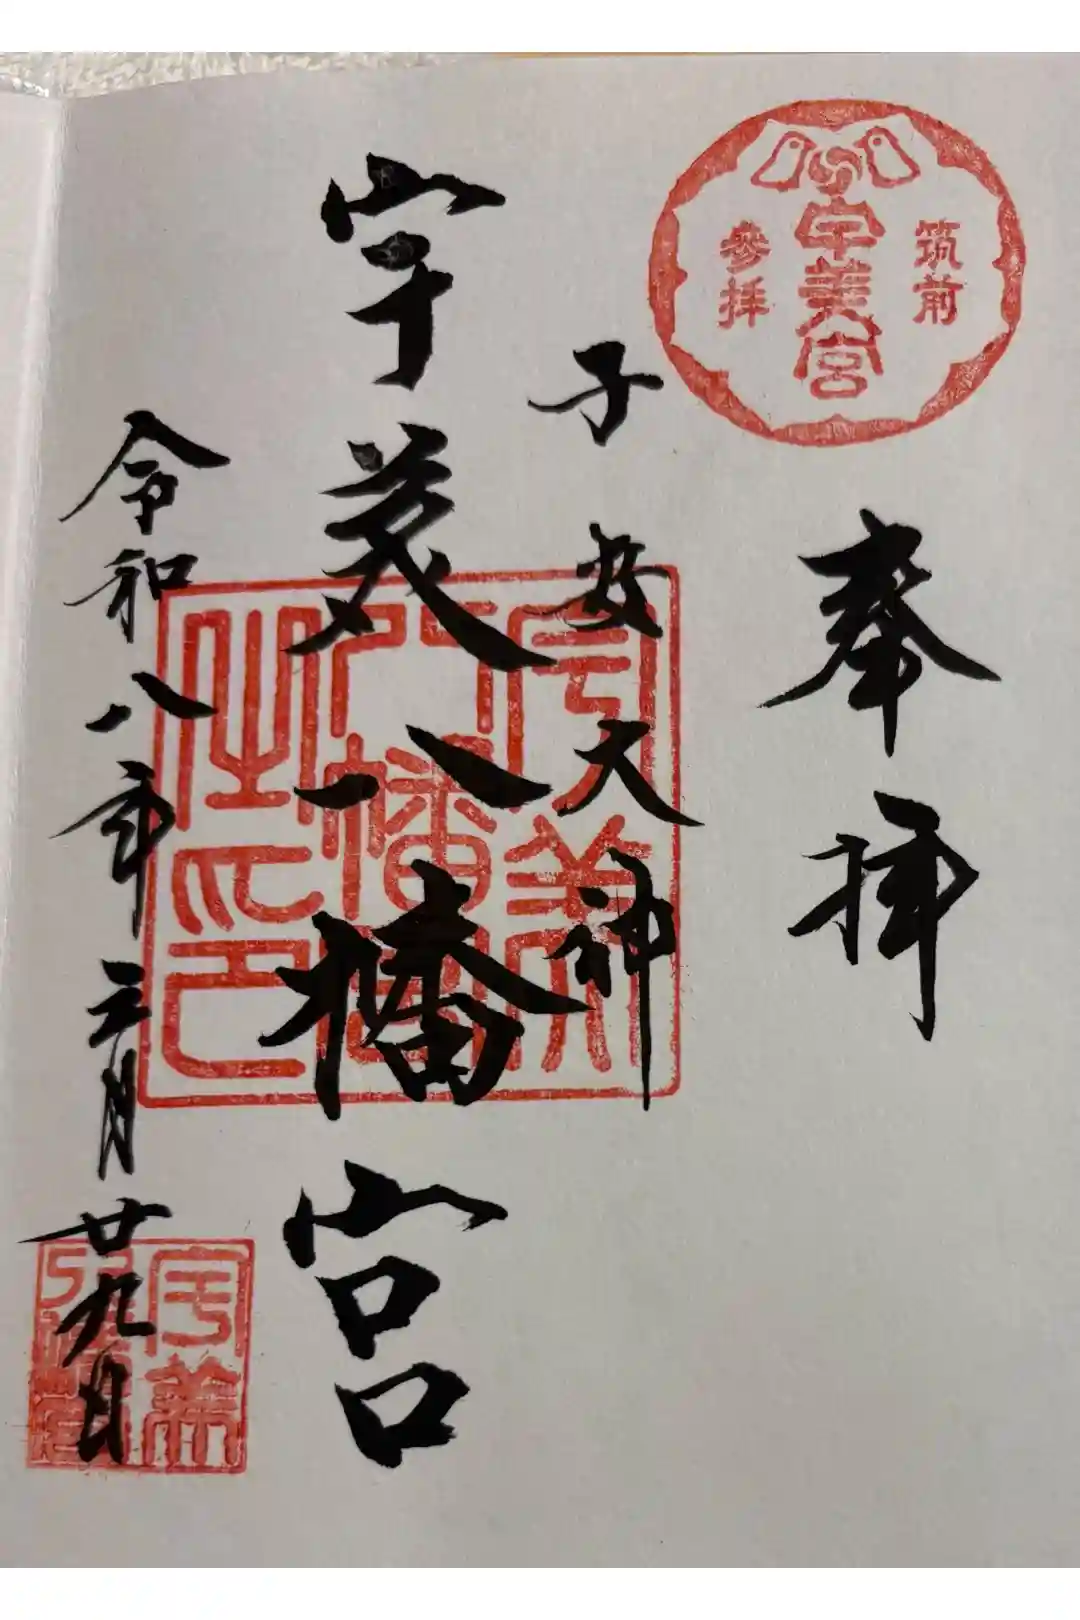 筑前
宇美宮
參拝
奉拝
子安大神
宇美八幡宮
令和八年三月廿九日
宇美
八幡宮
之印
宇美
八幡宮